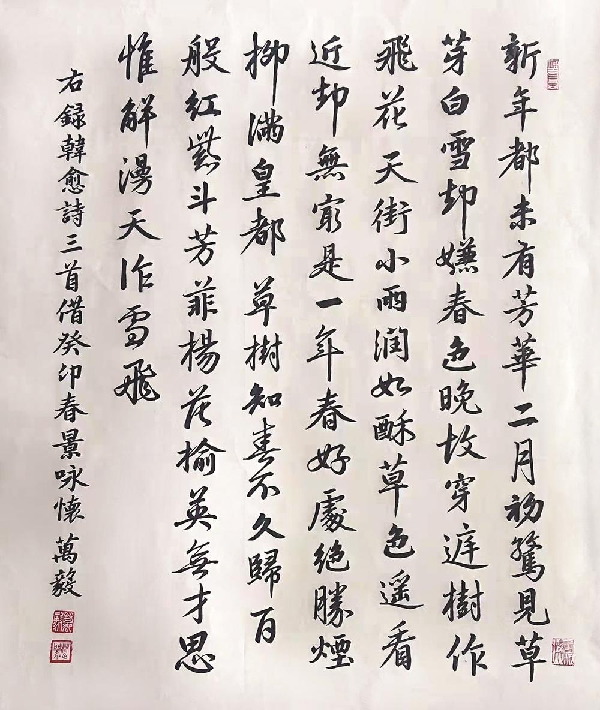 新年都未有芳華二月初驚見草
芽白雪却嫌春色晚故穿庭樹作
飛花天街小雨潤如酥草色遥看
近却無最是一年春好處絕勝煙
柳滿皇都草樹知春不久歸百
般紅紫斗芳菲楊花榆英無才思
惟解漫天作雪飛
右録韓愈詩三首借癸卯春景咏懷萬毅